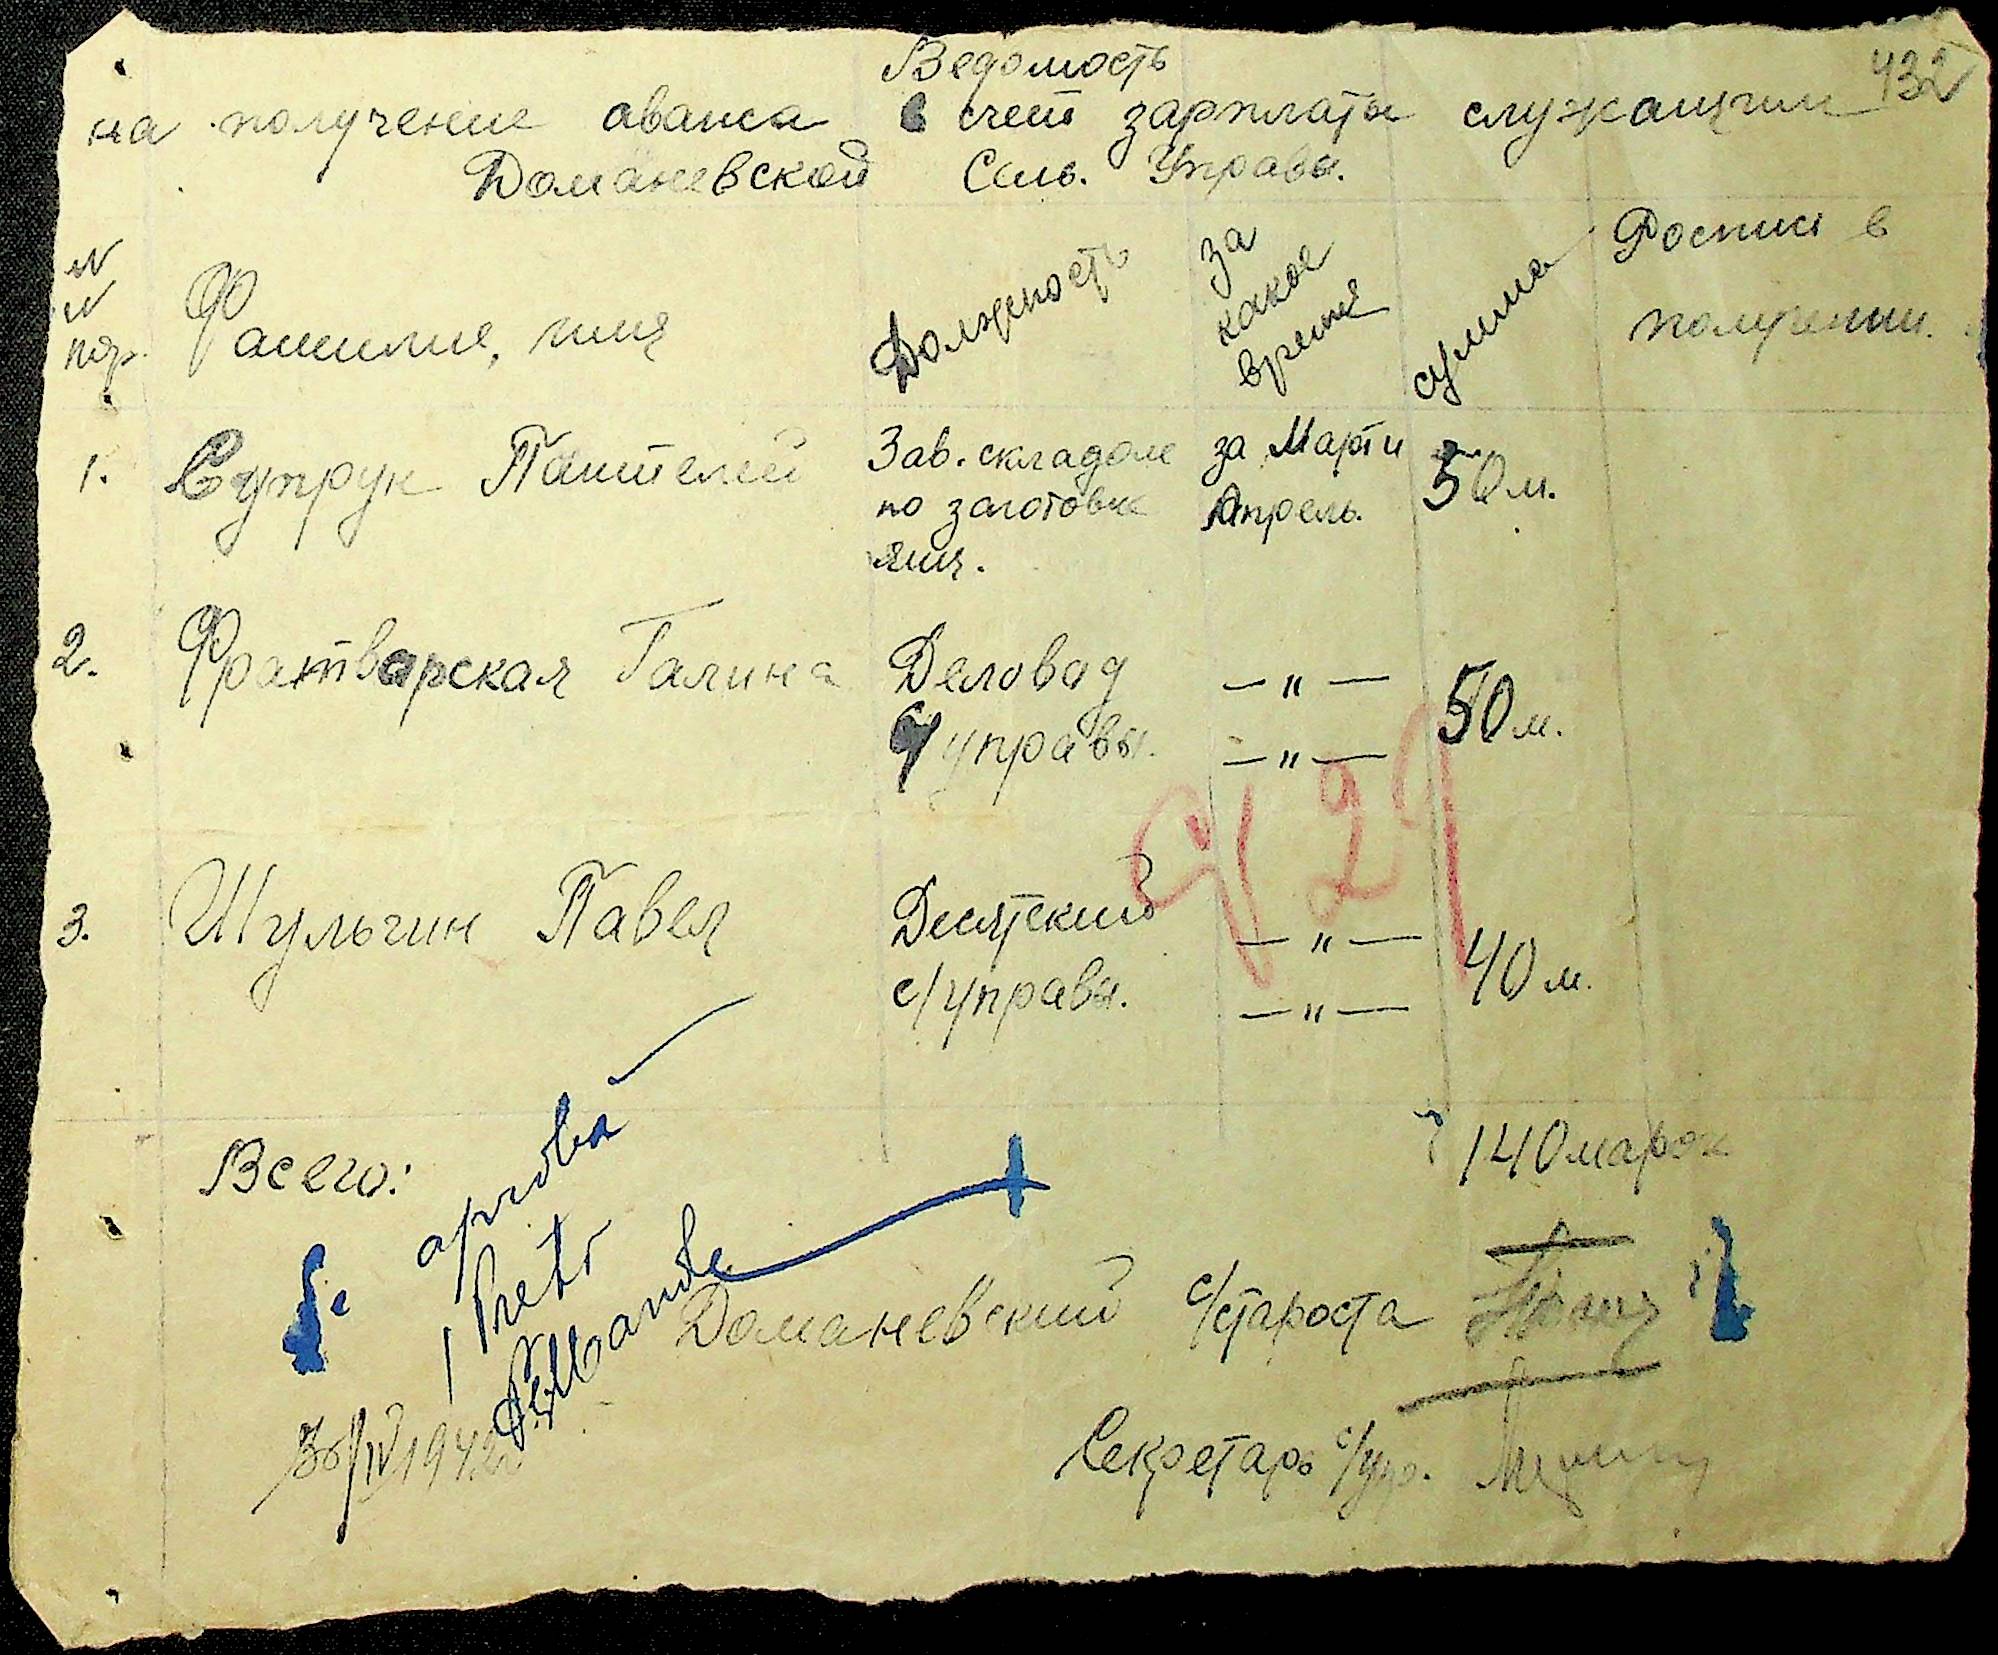 432
Ведомость
на получение аванса в счет зарплаты служащим
Доманевской Сель. Управы.
№ № пор.
Фамилие, имя
Должность
за какое время
сумма
Роспис в получении.
1. Супрук Пантелей Зав. складом по заготовке яиц. за Март и Апрель. 50 м.
2. Фратварская Галина Деловод с/управы. —"— —"— 50 м.
3. Шульгин Павел Десятский с/управы. —"— —"— 40 м.
429
Всего: 140 марок
aproba
Pretor
Доманевский с/староста
30/IV 1942
Секретарь с/упр.